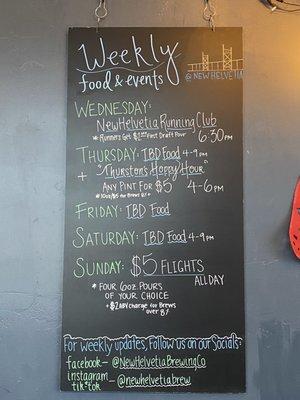 Weekly
food & events
@NEW HELVETIA
WEDNESDAY:
NewHelvetia Running Club
6:30 PM
THURSDAY: IBD Food 4-9PM
+ "Thurston's Happy Hour"
ANY PINT FOR $5 4-6PM
FRIDAY: IBD Food
SATURDAY: IBD Food 4-9PM
SUNDAY: $5 FLIGHTS
ALL DAY
* FOUR 6oz. POURS
OF YOUR CHOICE
charge for Brews
over 8%
For weekly updates, Follow us on our Socials:
facebook - @NewHelvetiaBrewingCo
instagram - @newhelvetiabrew
tik-tok